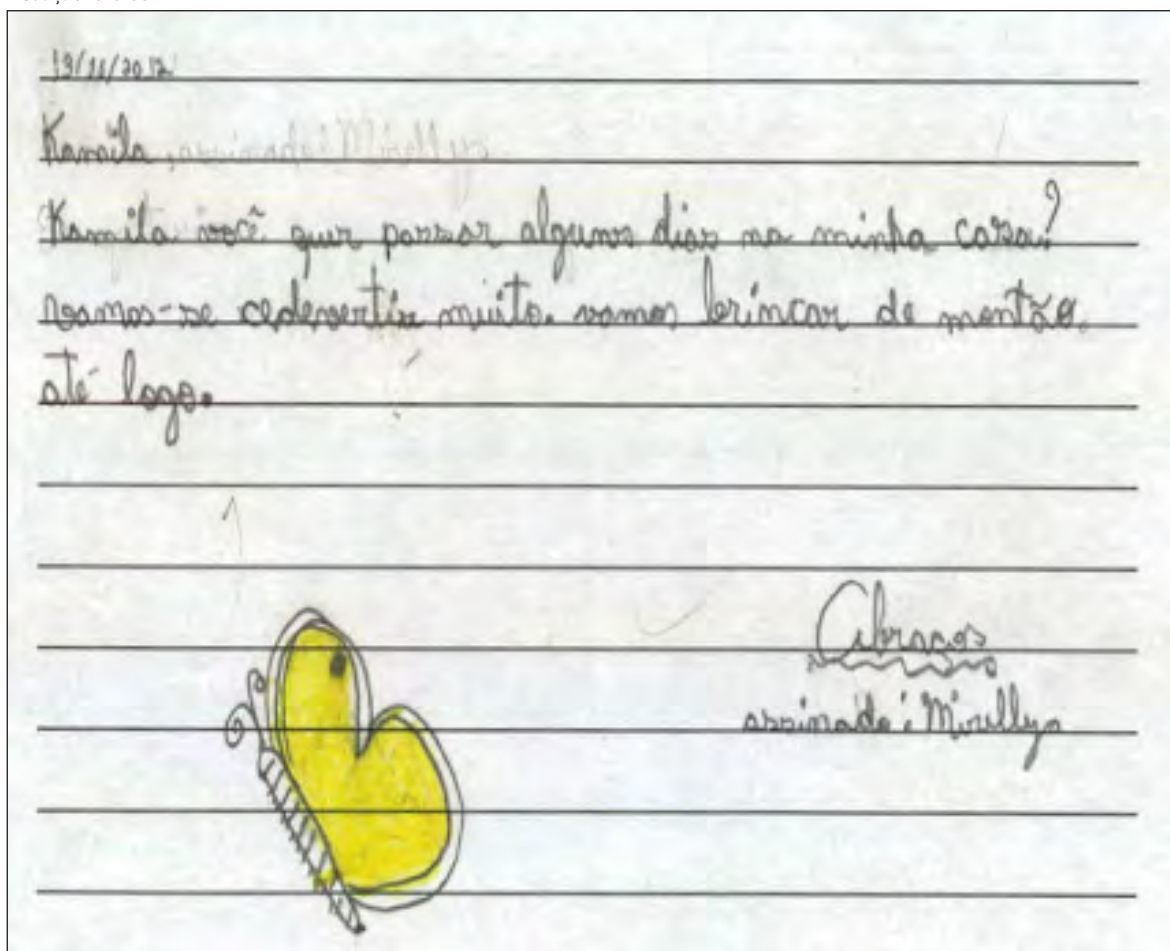 13/11/2012
Kamila, assinado: Mirellys
Kamila você quer passar algums dias na minha casa?
vamos-se cedevertir muito. vamos brincar de montão.
até logo.
Abraços
assinado: Mirellys